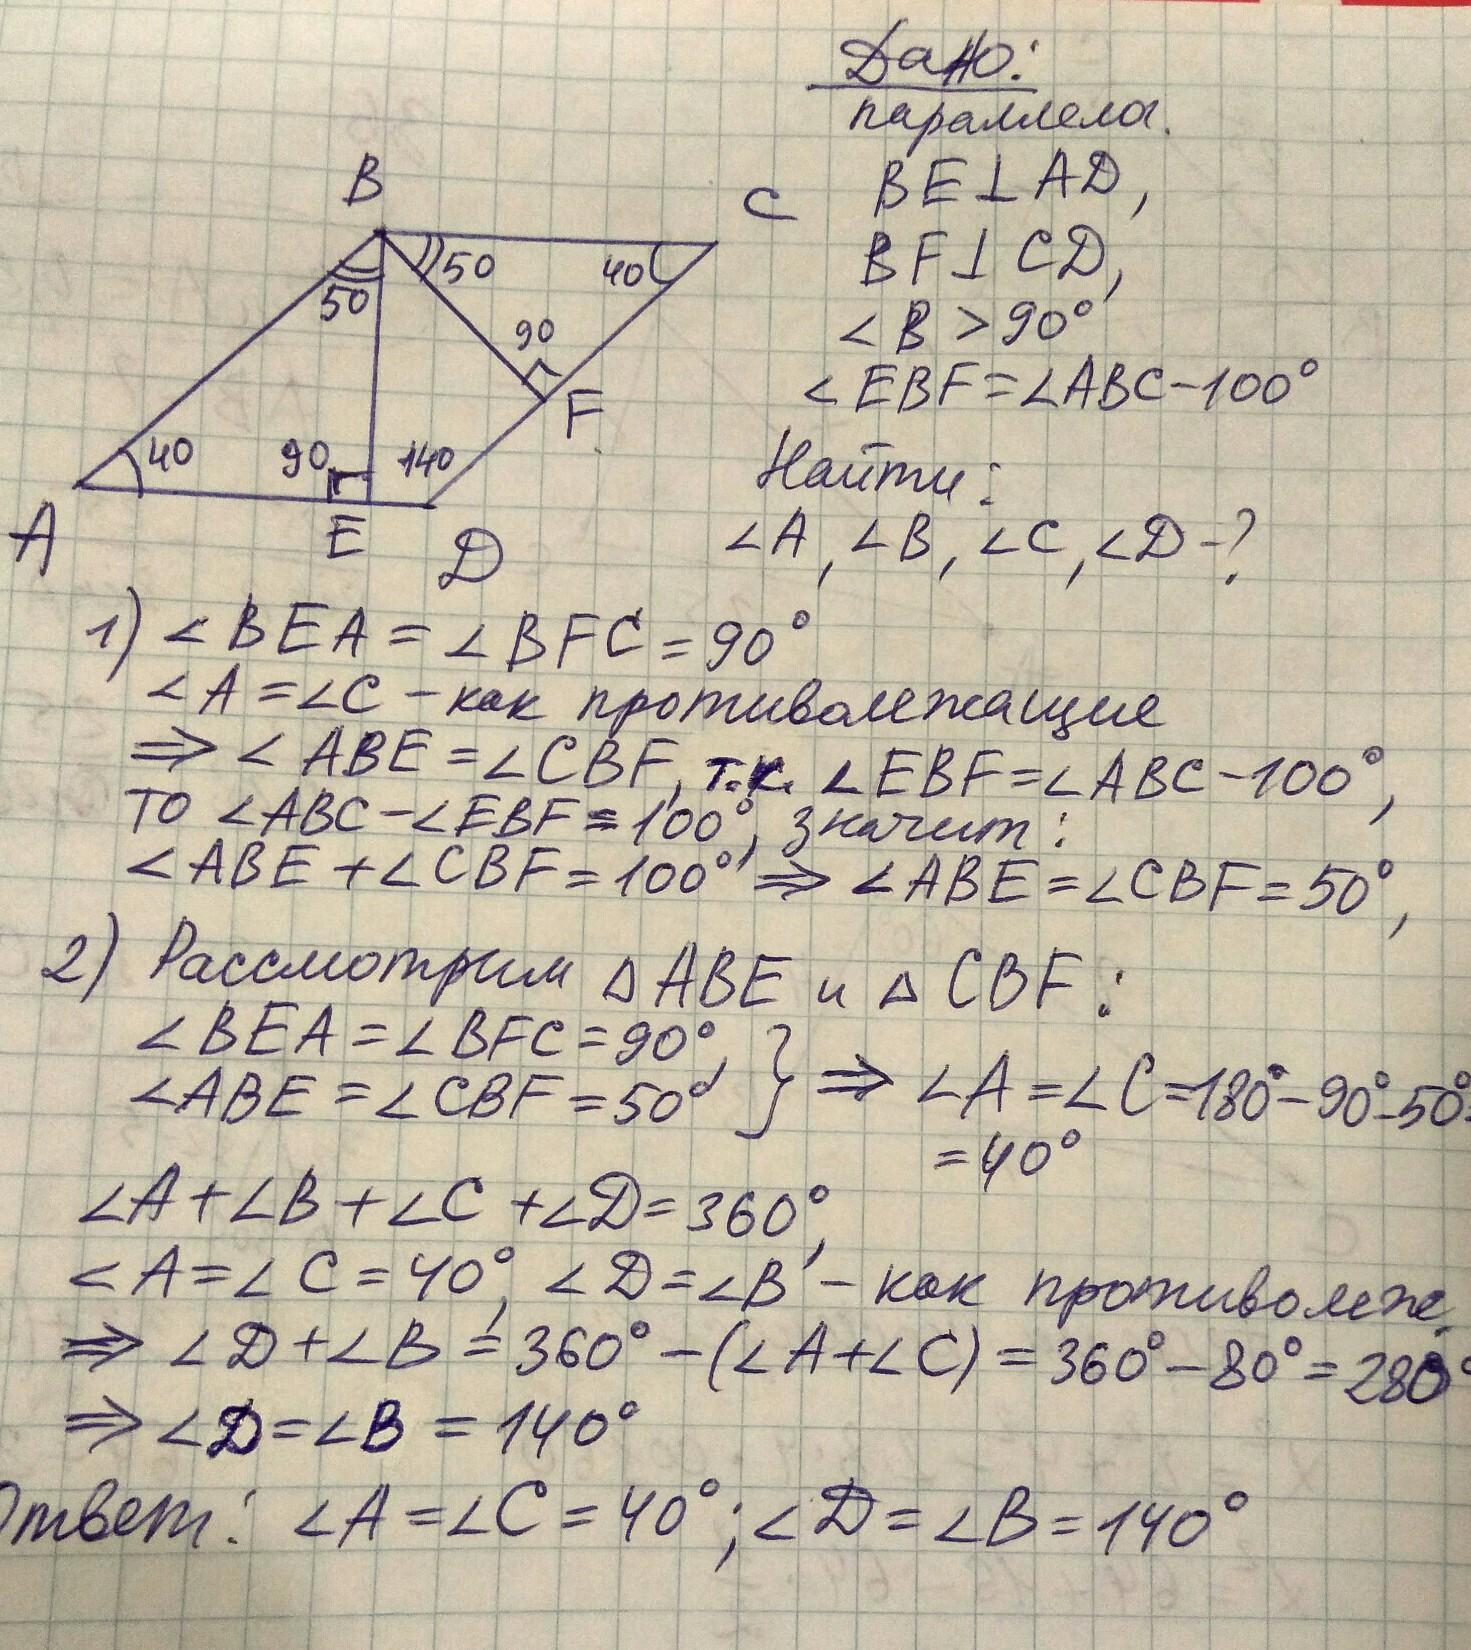 Дано:
параллелог.
BE⊥AD,
BF⊥CD,
∠B > 90°
∠EBF=∠ABC-100°
Найти:
∠A, ∠B, ∠C, ∠D-?
B
C
50
50
40
90
F
40
90
140
A
E
D
1) ∠BEA = ∠BFC = 90°
∠A = ∠C - как противолежащие
⇒ ∠ABE = ∠CBF, т.к. ∠EBF=∠ABC-100°,
то ∠ABC-∠EBF=100°, значит:
∠ABE+∠CBF=100° ⇒ ∠ABE=∠CBF=50°,
2) Рассмотрим △ABE и △CBF:
∠BEA=∠BFC=90°,
∠ABE=∠CBF=50° } ⇒ ∠A=∠C=180°-90°-50°=
=40°
∠A+∠B+∠C+∠D=360°,
∠A=∠C=40°, ∠D=∠B - как противолеж.
⇒ ∠D+∠B=360°-(∠A+∠C)=360°-80°=280°
⇒ ∠D=∠B=140°
Ответ: ∠A=∠C=40°; ∠D=∠B=140°